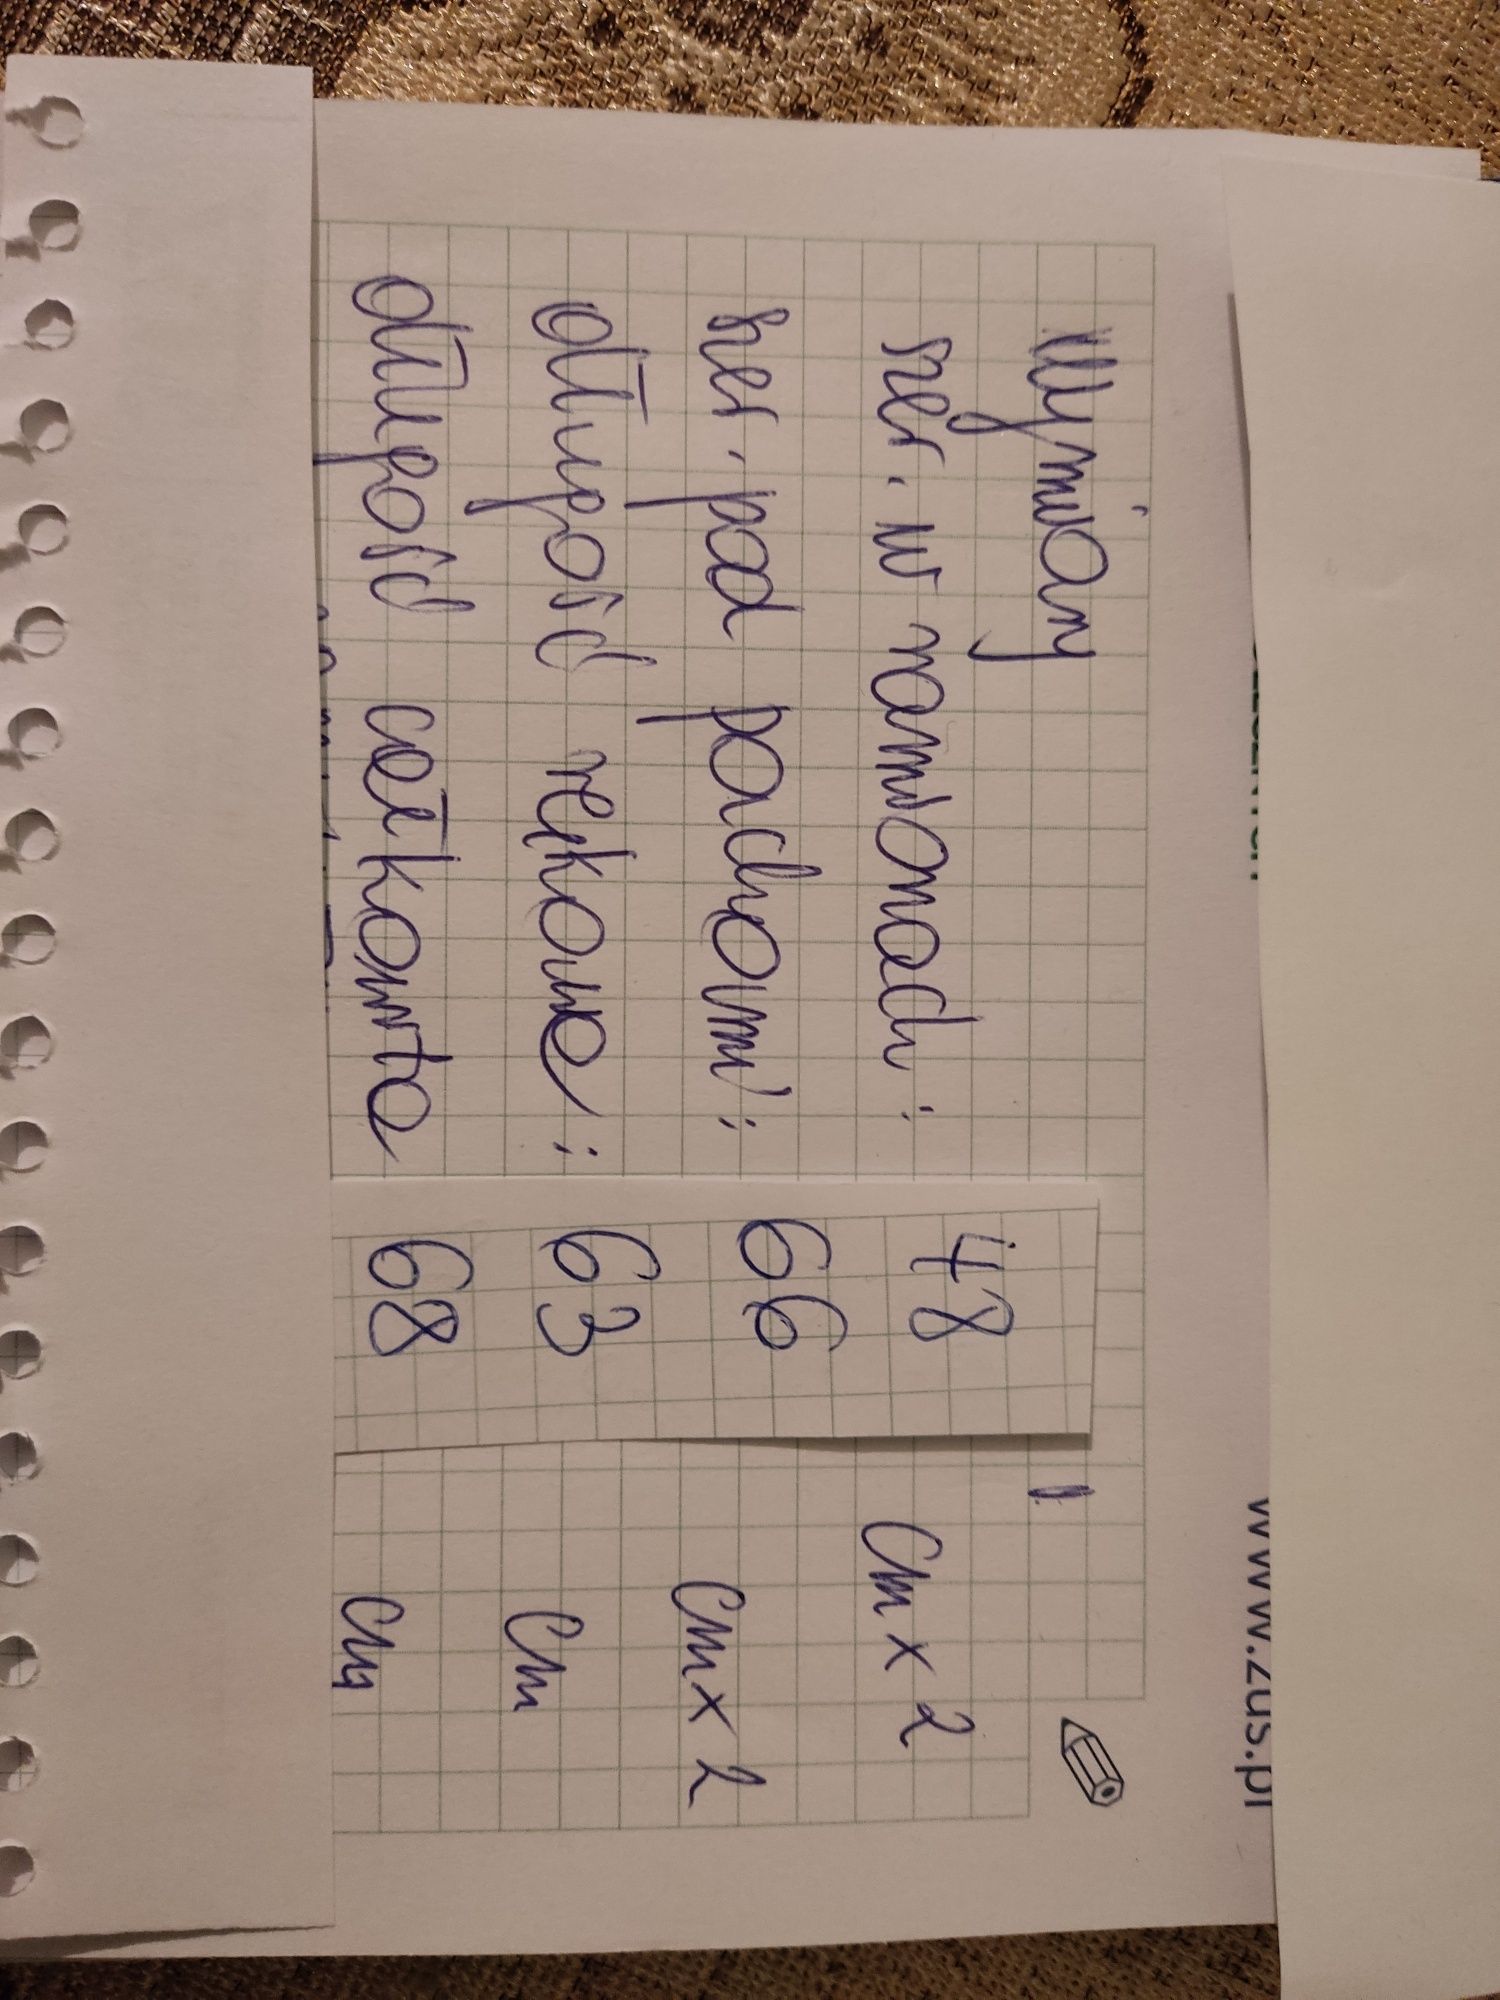 www.zus.pl
Wymiary
szer. w ramionach: 48 cm x 2
szer. pod pachami: 66 cm x 2
długość rękawa: 63 cm
długość całkowita 68 cm